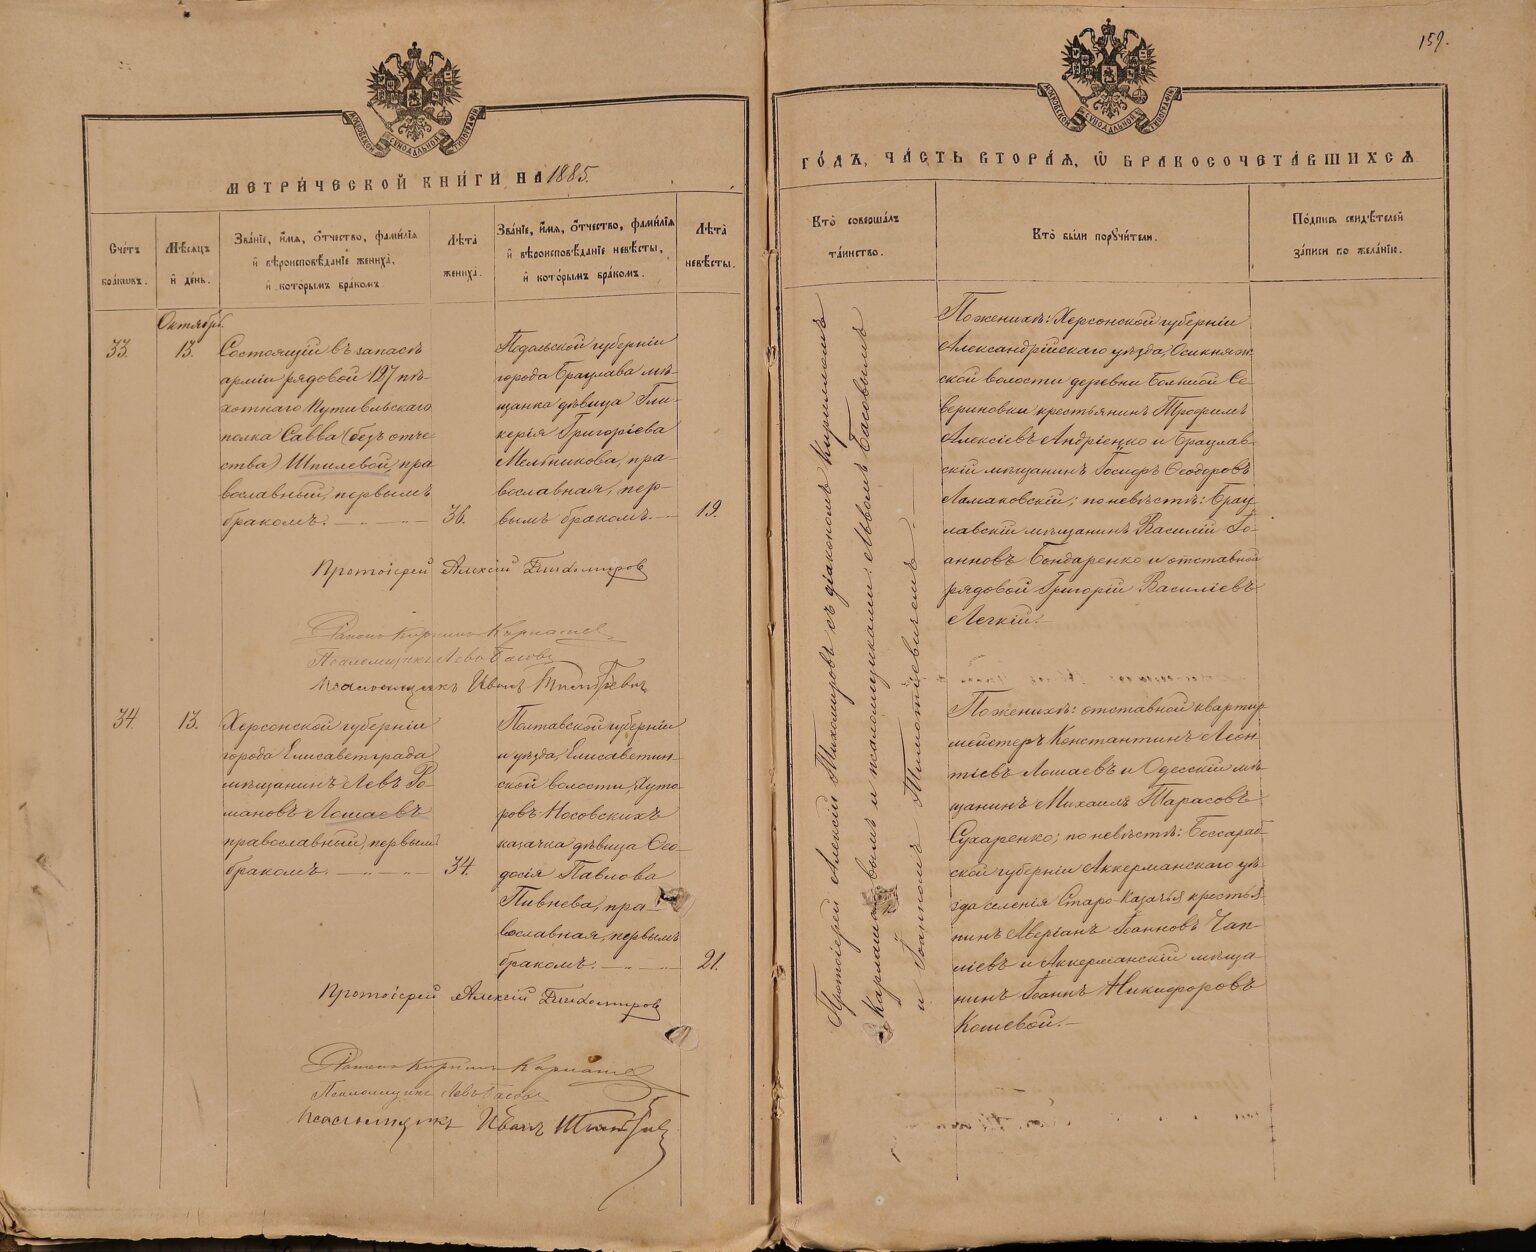 159.
МЕТРИ́ЧЕСКОЙ КНИ́ГИ НА 1885.
Сче́тъ
бра́ковъ.
Мѣ́сяцъ
и҆ де́нь.
Зва́нїе, и҆́мя, ѻ҆́тчество, фами́лїя
и҆ вѣроисповѣ́данїе жениха̀,
и҆ кото́рымъ бра́комъ
Лѣта̀
жениха̀.
Зва́нїе, и҆́мя, ѻ҆́тчество, фами́лїя
и҆ вѣроисповѣ́данїе невѣ́сты,
и҆ кото́рымъ бра́комъ.
Лѣта̀
невѣ́сты.
Октябрь.
33.
13.
Состоящій въ запасѣ
арміи рядовой 127 пѣ-
хотнаго Путивльскаго
полка Савва (безъ отче-
ства) Шпилевой, пра
вославный, первымъ
бракомъ.
36.
Подольской губерніи
города Брацлава мѣ-
щанка дѣвица Гли-
керія Григоріева
Мельникова, пра-
вославная, пер-
вымъ бракомъ.
19.
Протоіерей Алексій Тихомировъ
Псаломщикъ Левъ Басовъ
Псаломщикъ Иванъ
34
13.
Херсонской губерніи
города Елисаветграда
мѣщанинъ Левъ Ро-
мановъ Лошаевъ
православный, первымъ
бракомъ.
34.
Полтавской губерніи
и уѣзда, Елисаветин-
ской волости, Хуто-
ровъ Носовскихъ
казачка дѣвица Ѳео-
досія Павлова
Пивнева, пра-
вославная, первымъ
бракомъ.
21.
Протоіерей Алексій Тихомировъ
Псаломщикъ Левъ Басовъ
Псаломщикъ Иванъ
ГО́ДЪ, ЧА́СТЬ ВТОРА́Я, Ѡ҆ БРАКОСОЧЕТА́ВШИХСЯ
Кто̀ соверша́лъ
та́инство.
Кто̀ бы́ли поруч́ители.
По́дпись свидѣ́телей
за́писи по жела́нїю.
Протоіерей Алексій Тихомировъ съ діакономъ Кирилломъ
Карпашевымъ и псаломщиками: Львомъ Басовымъ
и Іоанномъ Тимотіевичемъ.
По женихѣ: Херсонской губерніи
Александрійскаго уѣзда, Осикняж-
ской волости деревни Большой Се-
вериновки крестьянинъ Трофимъ
Алексіевъ Андріецко и Брацлав-
скій мѣщанинъ Іосифъ Ѳеодоровъ
Ламаковскій; по невѣстѣ: Брац-
лавскій мѣщанинъ Василій Іо-
анновъ Бондаренко и отставной
рядовой Григорій Василіевъ
Легкій.
По женихѣ: отставной квартир
мейстеръ Константинъ Леон
тіевъ Лошаевъ и Одесскій мѣ
щанинъ Михаилъ Тарасовъ
Сухаренко; по невѣстѣ: Бессараб
ской губерніи Аккерманскаго уѣ-
зда селенія Старо-Казачья крестья
нинъ Аверіанъ Іоанновъ Чап-
ліевъ и Аккерманскій мѣща-
нинъ Іоаннъ Никифоровъ
Кошевой.